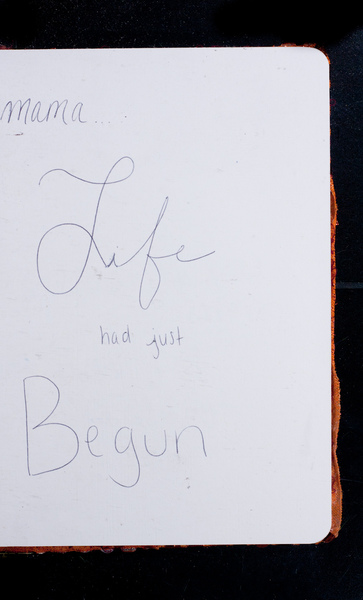 mama....
Life
had just
Begun